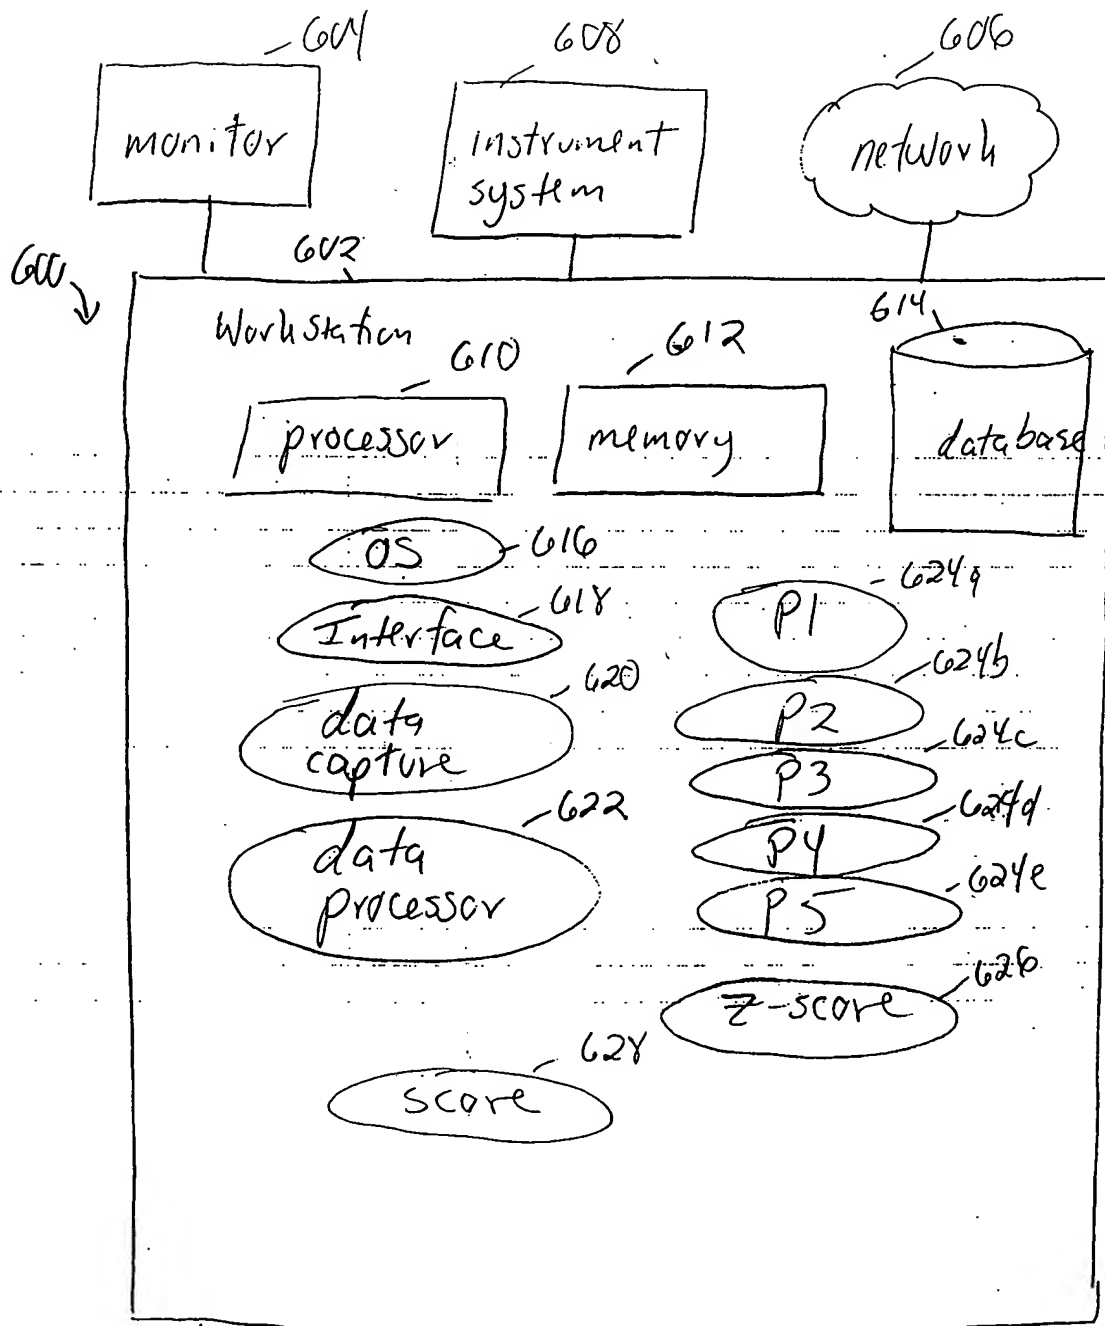 604
608
606
monitor
instrument
system
network
600
602
Workstation
610
612
614
processor
memory
database
OS
616
Interface
618
P1
624a
data
capture
620
P2
624b
P3
624c
data
processor
622
P4
624d
P5
624e
z-score
626
score
628